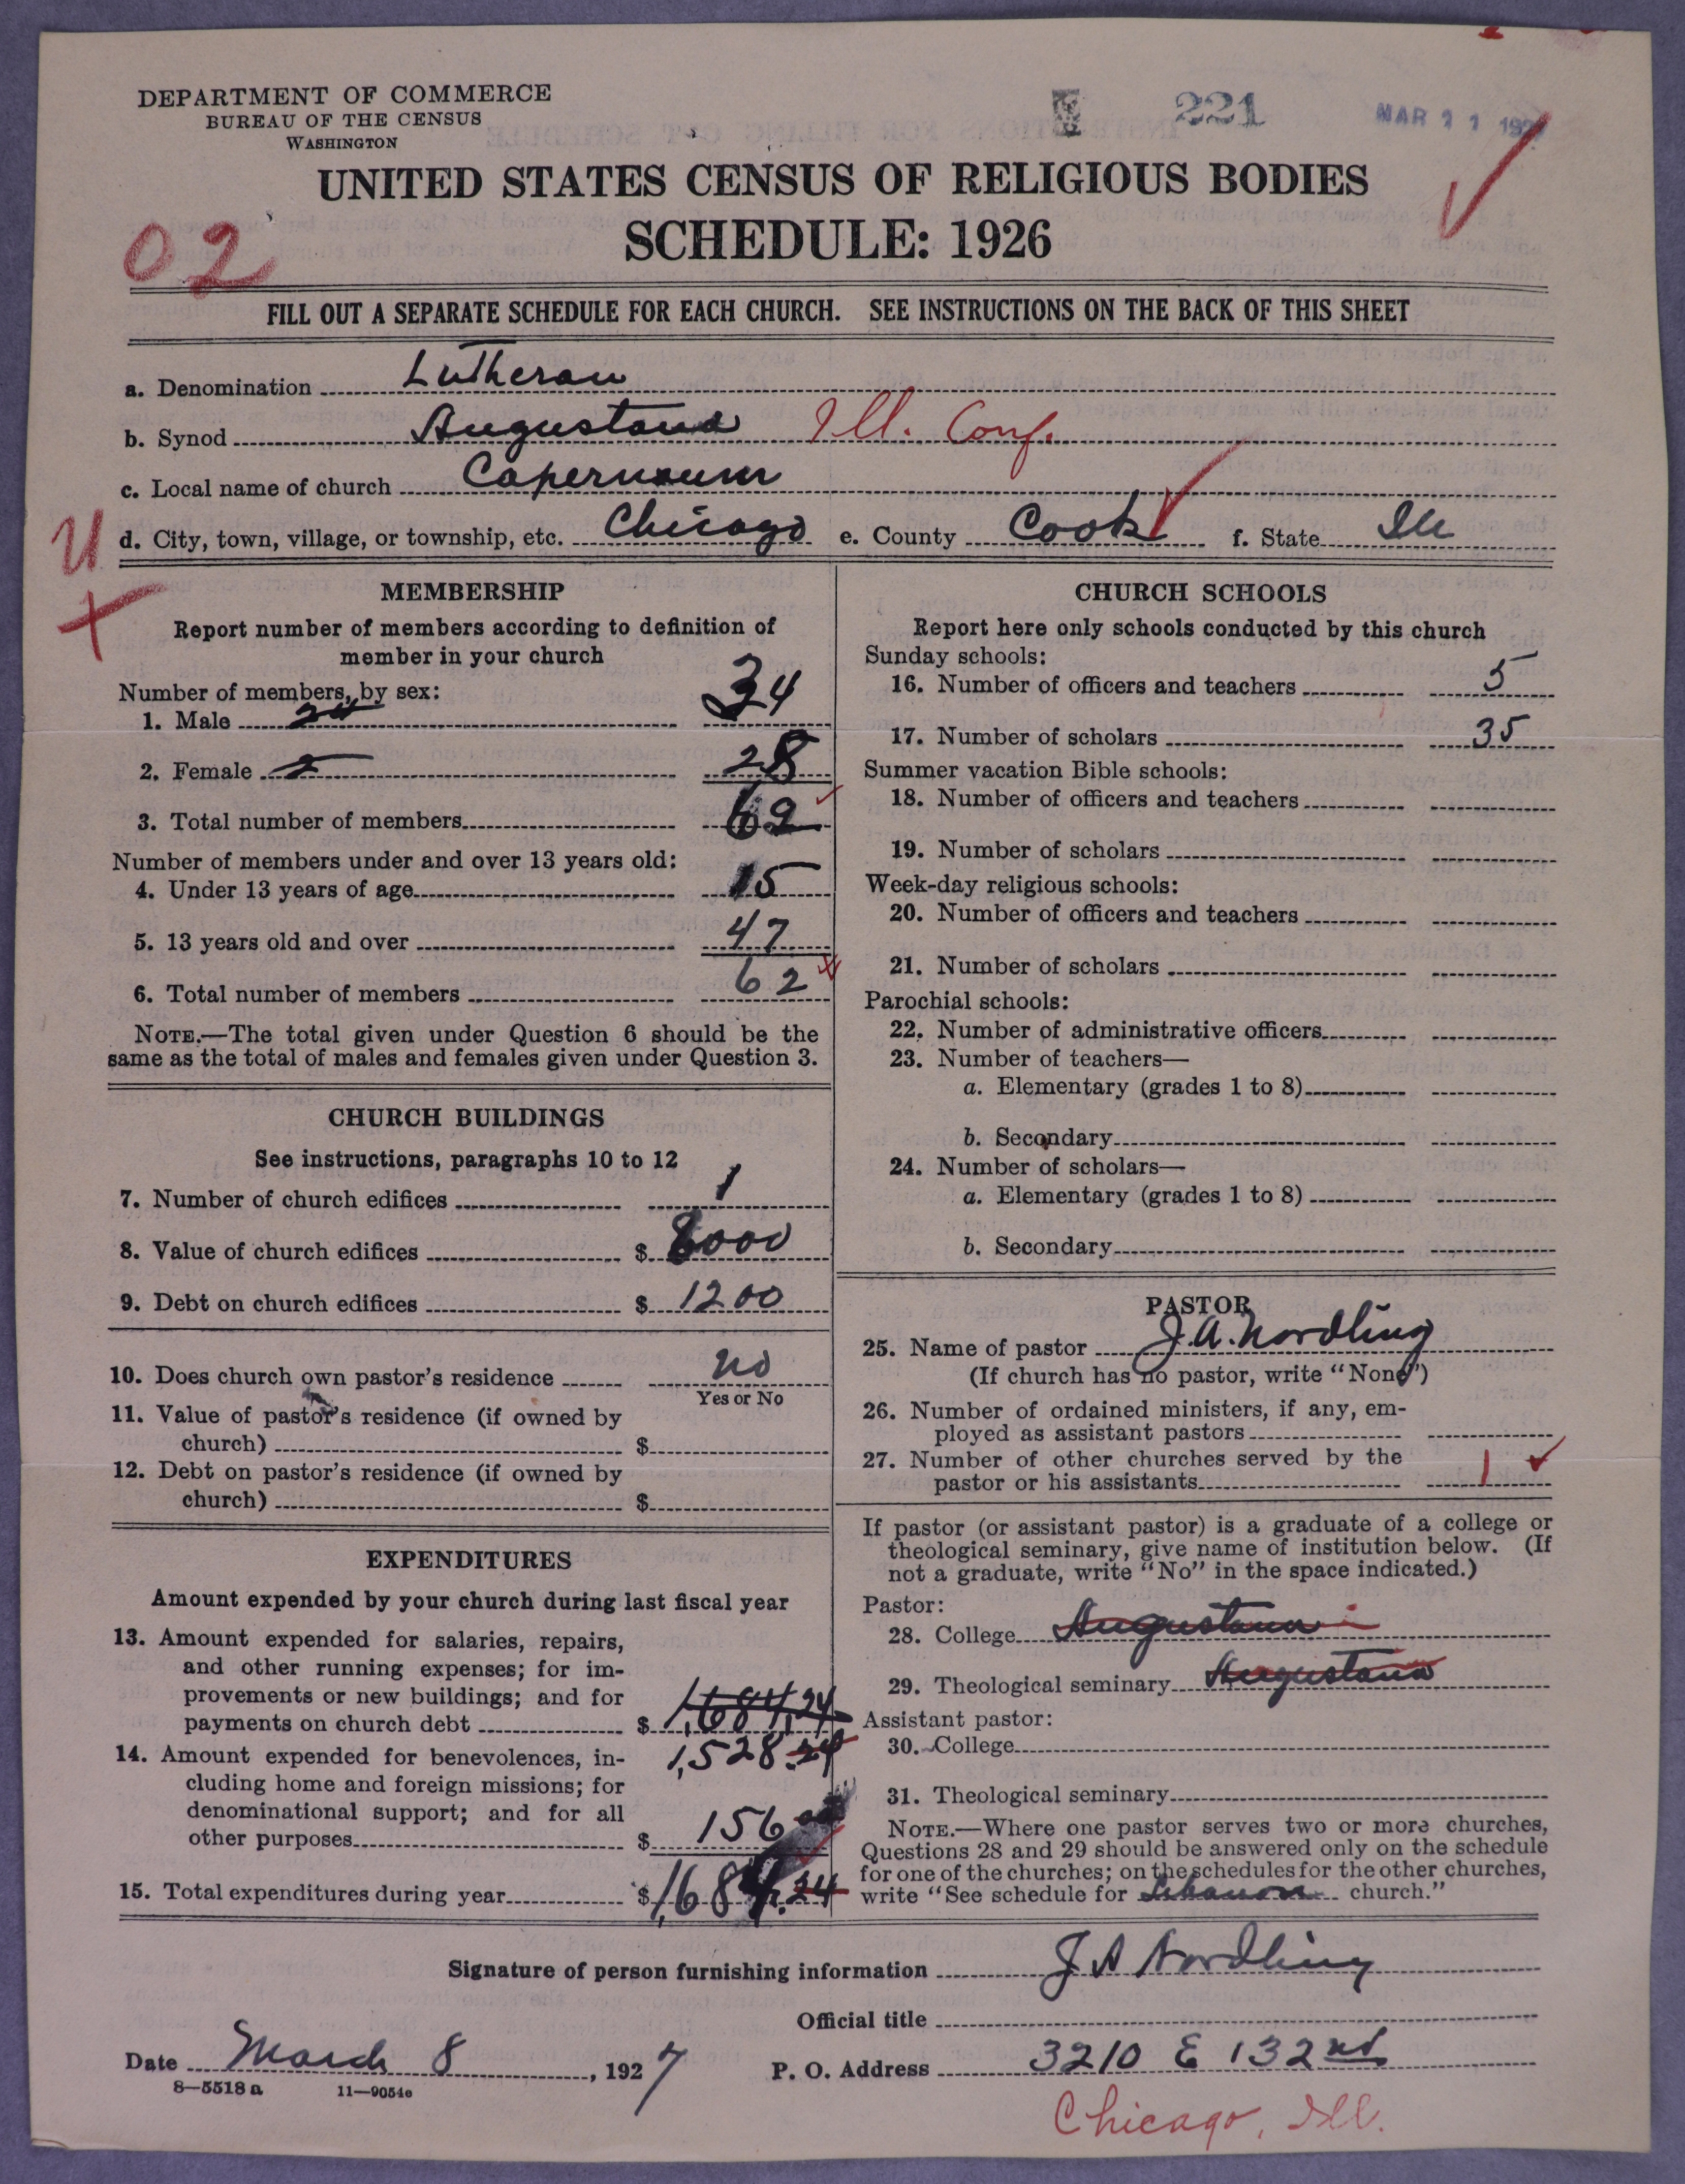 DEPARTMENT OF COMMERCE
BUREAU OF THE CENSUS
WASHINGTON
221
MAR 11 192
UNITED STATES CENSUS OF RELIGIOUS BODIES
SCHEDULE: 1926
02
FILL OUT A SEPARATE SCHEDULE FOR EACH CHURCH. SEE INSTRUCTIONS ON THE BACK OF THIS SHEET
a. Denomination Lutheran
b. Synod Augustana Ill. Conf.
c. Local name of church Capernaum
d. City, town, village, or township, etc. Chicago e. County Cook f. State Ill
U
MEMBERSHIP
Report number of members according to definition of
member in your church
Number of members, by sex:
1. Male 34
2. Female 28
3. Total number of members 62
Number of members under and over 13 years old:
4. Under 13 years of age 15
5. 13 years old and over 47
6. Total number of members 62
NOTE.—The total given under Question 6 should be the
same as the total of males and females given under Question 3.
CHURCH BUILDINGS
See instructions, paragraphs 10 to 12
7. Number of church edifices 1
8. Value of church edifices $ 8000
9. Debt on church edifices $ 1200
10. Does church own pastor's residence no
Yes or No
11. Value of pastor's residence (if owned by
church) $
12. Debt on pastor's residence (if owned by
church) $
EXPENDITURES
Amount expended by your church during last fiscal year
13. Amount expended for salaries, repairs,
and other running expenses; for im-
provements or new buildings; and for
payments on church debt $ 1,684,24
14. Amount expended for benevolences, in- 1,528.24
cluding home and foreign missions; for
denominational support; and for all
other purposes $ 156
15. Total expenditures during year $ 1,684.24
CHURCH SCHOOLS
Report here only schools conducted by this church
Sunday schools:
16. Number of officers and teachers 5
17. Number of scholars 35
Summer vacation Bible schools:
18. Number of officers and teachers
19. Number of scholars
Week-day religious schools:
20. Number of officers and teachers
21. Number of scholars
Parochial schools:
22. Number of administrative officers
23. Number of teachers—
a. Elementary (grades 1 to 8)
b. Secondary
24. Number of scholars—
a. Elementary (grades 1 to 8)
b. Secondary
PASTOR
25. Name of pastor J. A. Nordling
(If church has no pastor, write "None")
26. Number of ordained ministers, if any, em-
ployed as assistant pastors
27. Number of other churches served by the
pastor or his assistants 1
If pastor (or assistant pastor) is a graduate of a college or
theological seminary, give name of institution below. (If
not a graduate, write "No" in the space indicated.)
Pastor:
28. College Augustana
29. Theological seminary Augustana
Assistant pastor:
30. College
31. Theological seminary
NOTE.—Where one pastor serves two or more churches,
Questions 28 and 29 should be answered only on the schedule
for one of the churches; on the schedules for the other churches,
write "See schedule for Lebanon church."
Signature of person furnishing information J A Nordling
Official title
Date March 8, 1927 P. O. Address 3210 E 132nd
8—5518 a 11—9054e
Chicago, Ill.